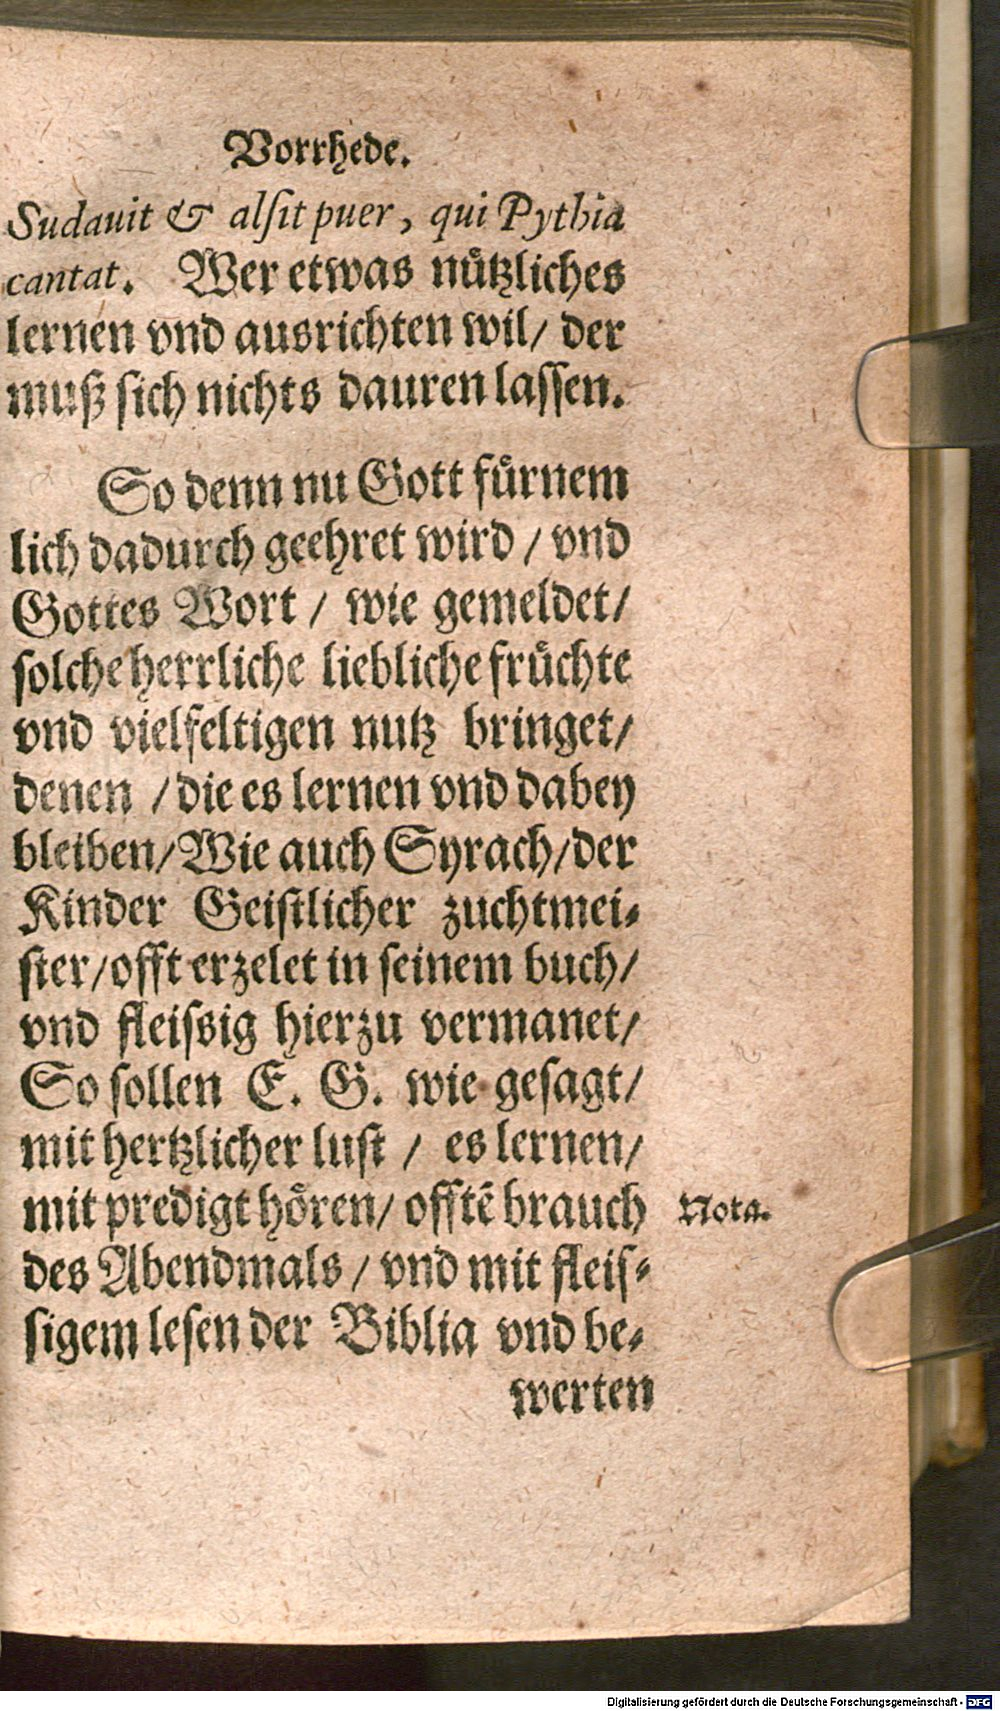 Vorrhede.
Sudauit & alſit puer, qui Pythia
cantat. Wer etwas nuͤtzliches
lernen vnd ausrichten wil/ der
muß sich nichts dauren lassen.
So denn nu Gott fuͤrnem
lich dadurch geehret wird / vnd
Gottes Wort / wie gemeldet/
solche herrliche liebliche fruͤchte
vnd vielfeltigen nutz bringet/
denen / die es lernen vnd dabey
bleiben/ Wie auch Syrach/ der
Kinder Geistlicher zuchtmei⸗
ster/ offt erzelet in seinem buch/
vnd fleissig hierzu vermanet/
So sollen E. G. wie gesagt/
mit hertzlicher lust / es lernen/
mit predigt hoͤren/ offtē brauch
des Abendmals / vnd mit fleis⸗
sigem lesen der Biblia vnd be⸗
werten
Nota.
Digitalisierung gefördert durch die Deutsche Forschungsgemeinschaft - DFG